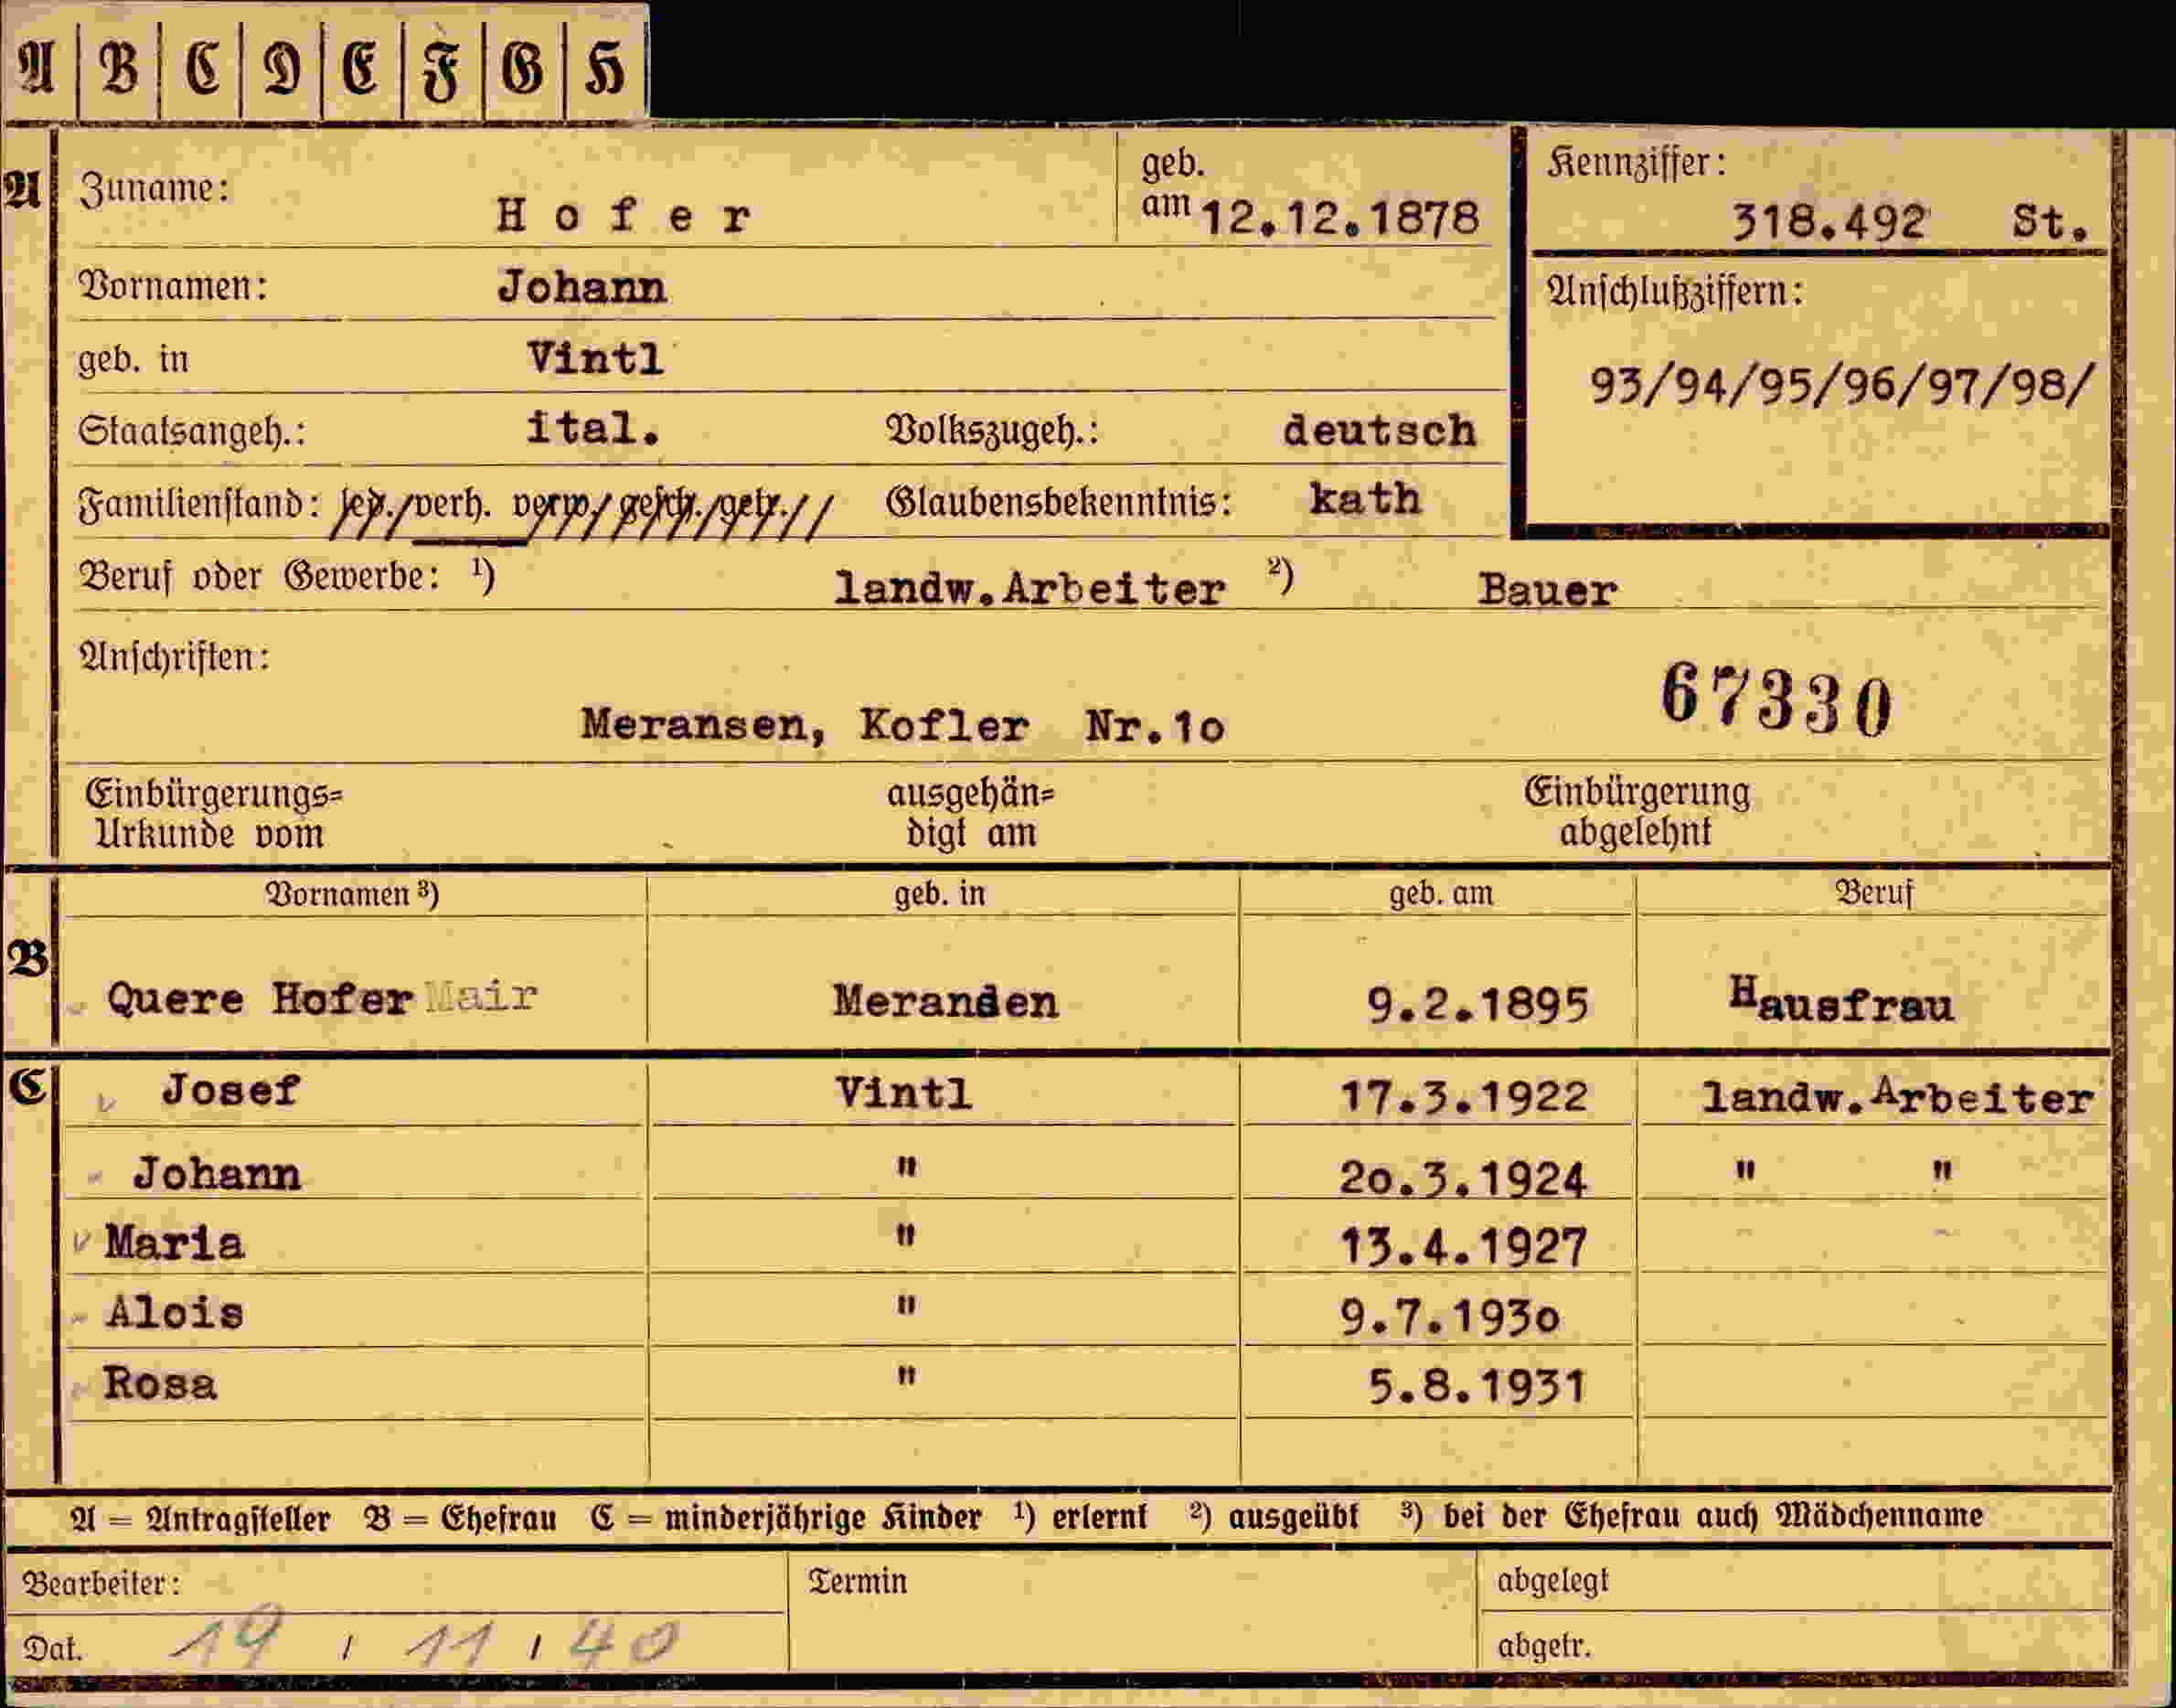 A B C D E F G H
A Zuname: Hofer geb. am 12.12.1878 Kennziffer: 318.492 St.
Vornamen: Johann Anschlußziffern:
geb. in Vintl 93/94/95/96/97/98/
Staatsangeh.: ital. Volkszugeh.: deutsch
Familienstand: led./verh. verw/gesch./getr.// Glaubensbekenntnis: kath
Beruf oder Gewerbe: ¹) landw.Arbeiter ²) Bauer
Anschriften: 67330
Meransen, Kofler Nr.1o
Einbürgerungs= ausgehän= Einbürgerung
Urkunde vom digt am abgelehnt
Vornamen ³) geb. in geb. am Beruf
B Quere Hofer Mair 9.2.1895 Hausfrau
C Josef Vintl 17.3.1922 landw.Arbeiter
Johann " 2o.3.1924 " "
Maria " 13.4.1927
Alois " 9.7.193o
Rosa " 5.8.1931
A = Antragsteller B = Ehefrau C = minderjährige Kinder ¹) erlernt ²) ausgeübt ³) bei der Ehefrau auch Mädchenname
Bearbeiter: Termin abgelegt
Dat. 19 / 11 / 40 abgetr.